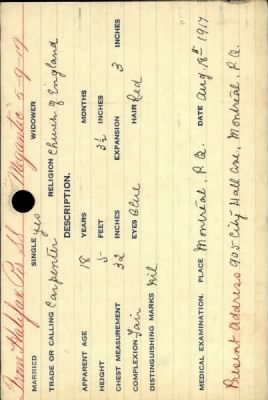 From Halifax Per SS Megantic 5-9-19
MARRIED SINGLE yes WIDOWER
TRADE OR CALLING Carpenter RELIGION Church of England
DESCRIPTION.
APPARENT AGE 18 YEARS MONTHS
HEIGHT 5 FEET 3½ INCHES
CHEST MEASUREMENT 32 INCHES EXPANSION 3 INCHES
COMPLEXION Fair EYES Blue HAIR Red
DISTINGUISHING MARKS Nil
MEDICAL EXAMINATION. PLACE Montréal, P.Q. DATE Aug. 18th 1917
Present Address 905 City Hall Ave., Montreal, P.Q.